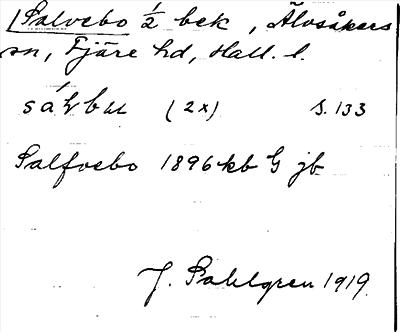 Salvebo ½ bek, Älvsåkers
sn, Fjäre hd, Hall. l.
(2x) S. 133
Salfvebo 1896 kb jb
J. Sahlgren 1919.